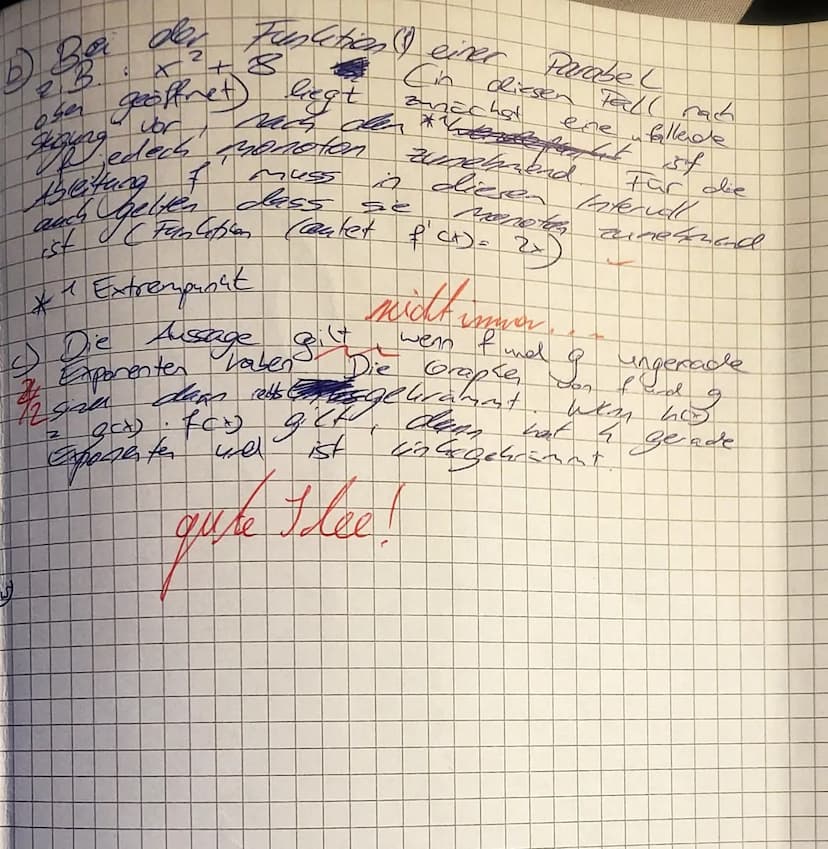 b) Bei der Funktion (f) einer Parabel
z.B. : x² + 8 (in diesen Fall nach
oben geöffnet) liegt zunächst eine „fallende
Steigung" vor, nach den *¹ ist
f jedoch monoton zunehmend. Für die
Ableitung f' muss in diesen Intervall
auch gelten dass sie monoton zunehmend
ist (Funktion lautet f'(x) = 2x)
*¹ Extrempunkt
nicht immer...
c) Die Aussage gilt, wenn f und g ungerade
Exponenten haben. Die Graphen von f und g
sind dann gekrümmt. Wenn h(x)
= g(x) · f(x) gilt, dann hat h gerade
Exponenten und ist linksgekrümmt.
gute Idee!